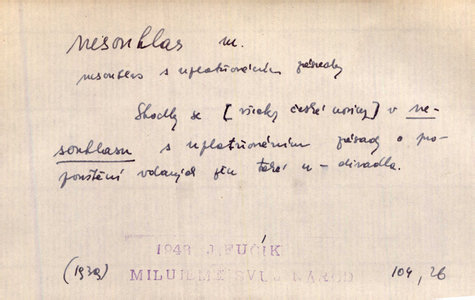 nesouhlas m.
nesouhlas s uplatňováním zásady
Shodly se [všecky české noviny] v ne-
souhlasu s uplatňováním zásady o pro-
pouštění vdaných žen také u divadla.
1948 J. FUČÍK
(1939) MILUJEME SVŮJ NÁROD 104, 26